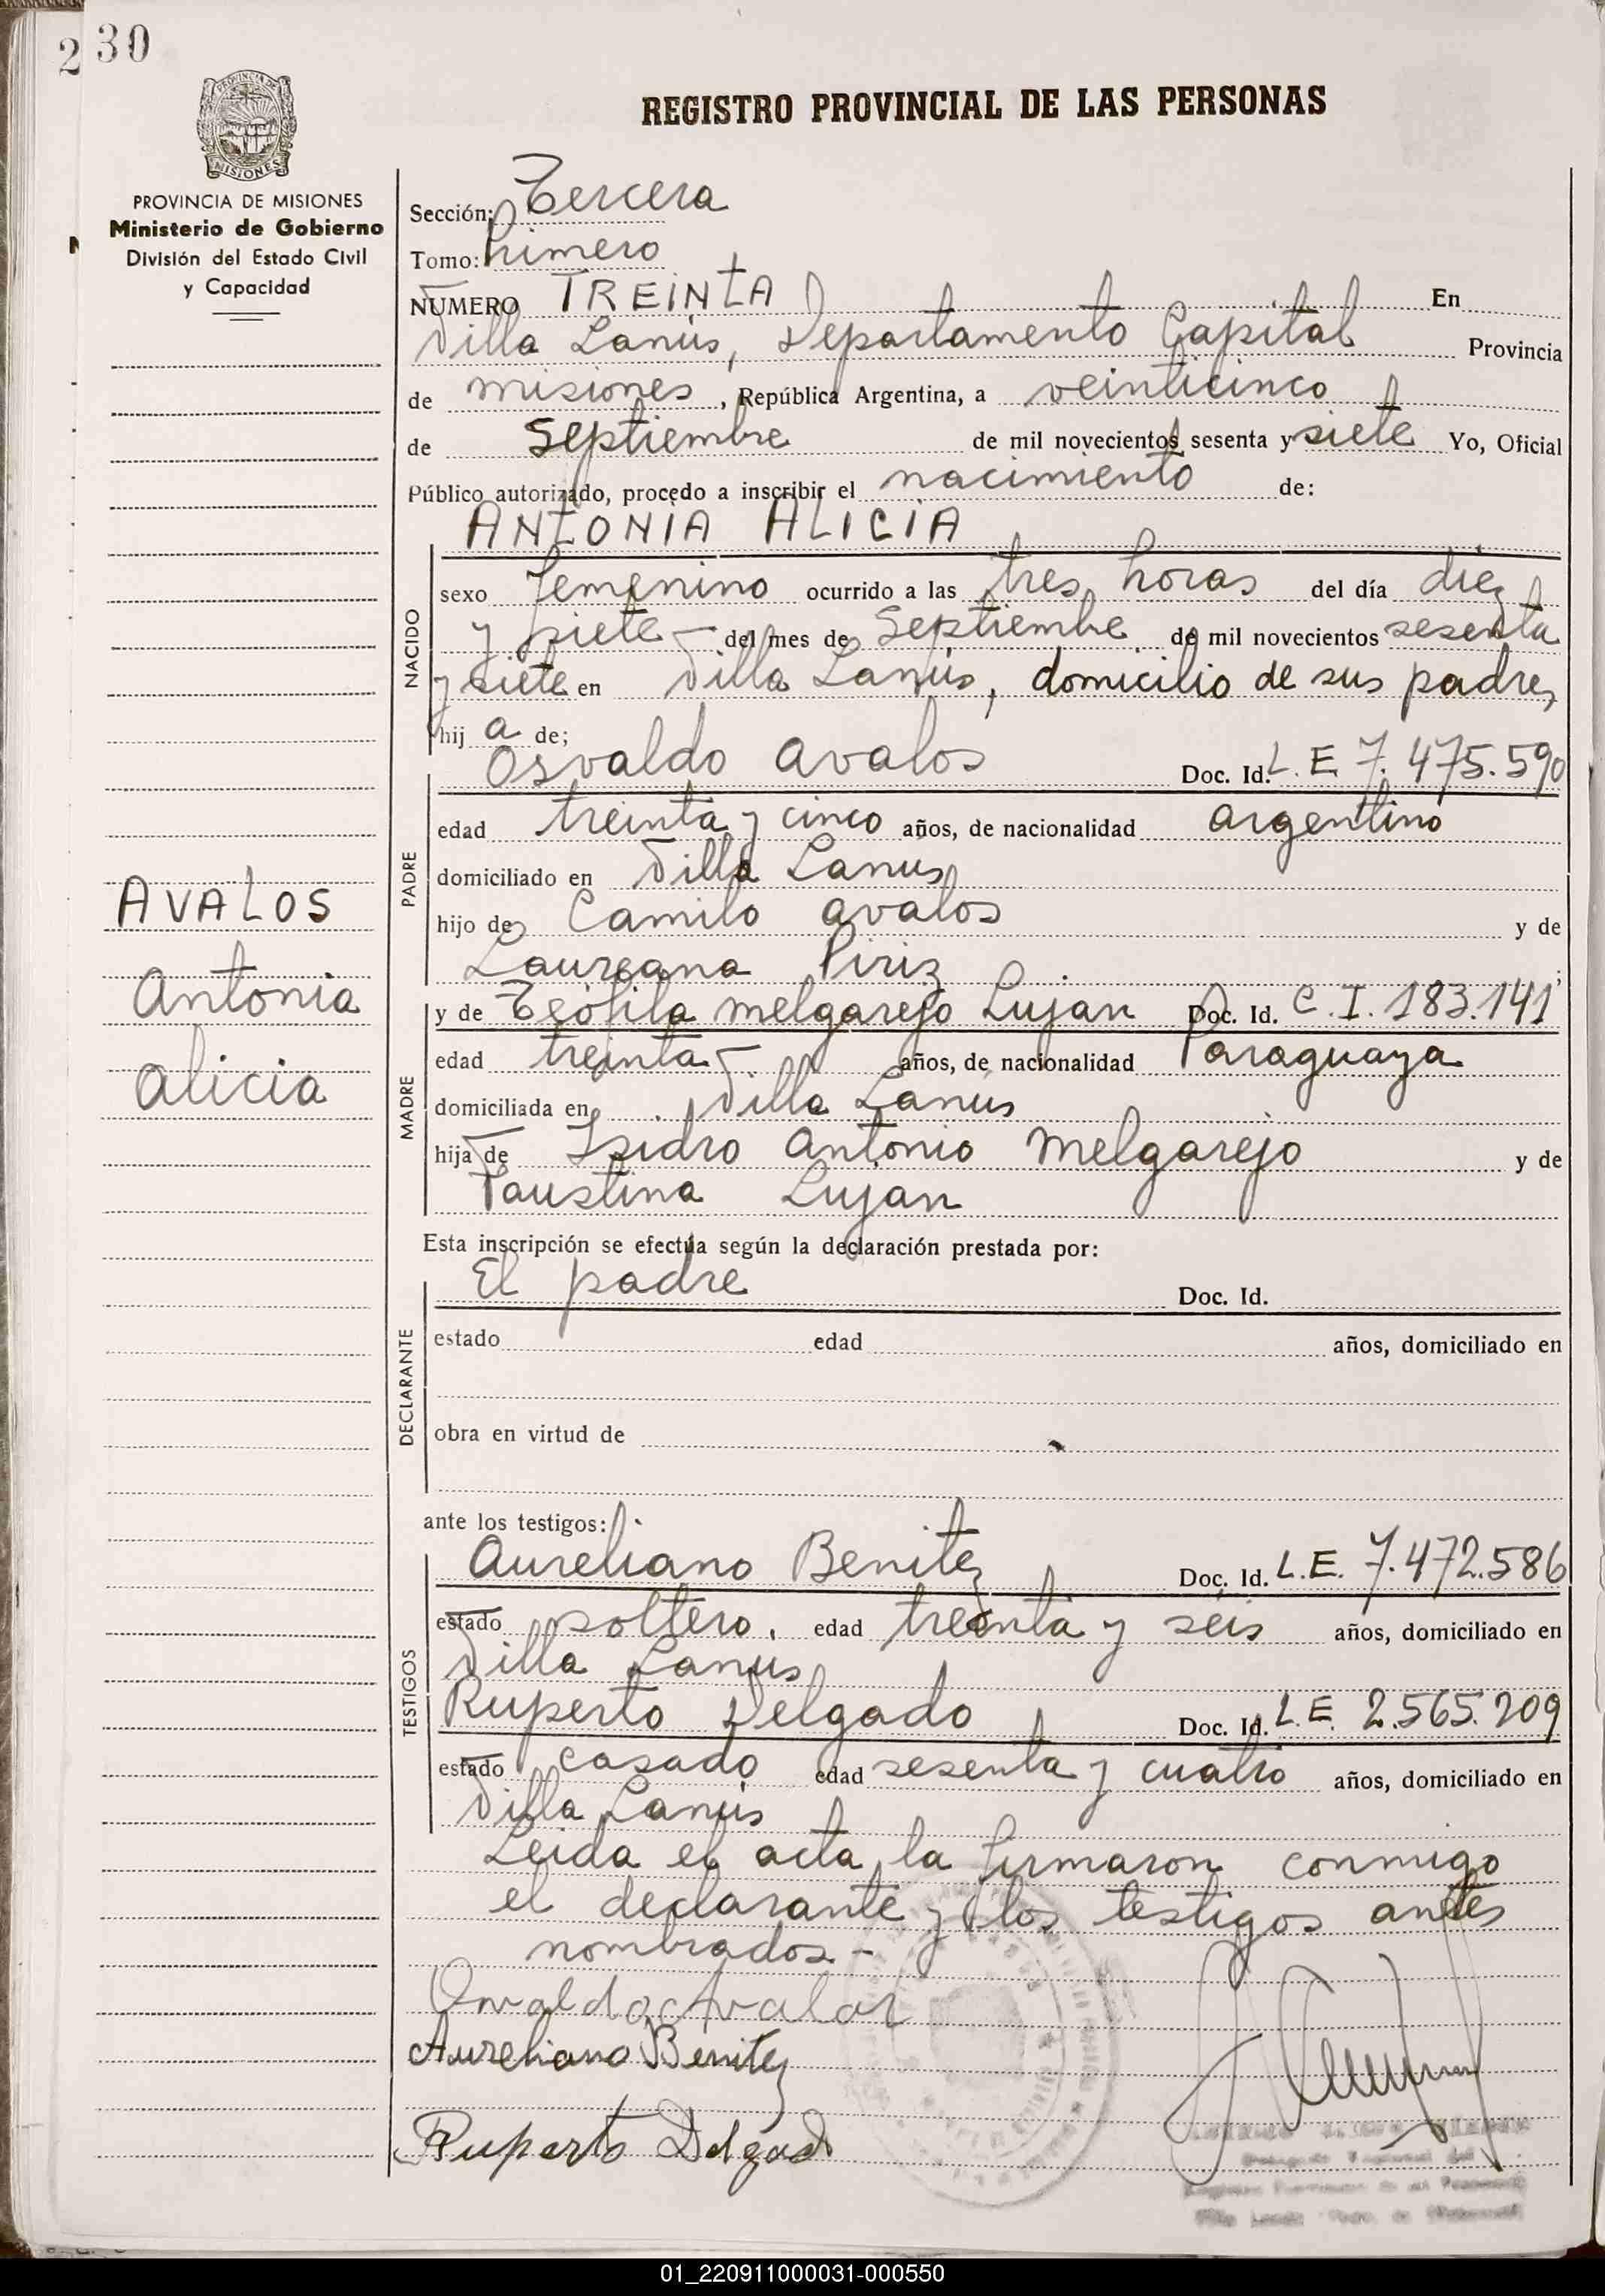 2 30
REGISTRO PROVINCIAL DE LAS PERSONAS
PROVINCIA DE MISIONES
Ministerio de Gobierno
División del Estado Civil
y Capacidad
AVALOS
Antonia
Alicia
Sección: Tercera
Tomo: Primero
NUMERO TREINTA En
Villa Lanús, Departamento Capital Provincia
de misiones, República Argentina, a veinticinco
de Septiembre de mil novecientos sesenta y siete Yo, Oficial
Público autorizado, procedo a inscribir el nacimiento de:
ANTONIA ALICIA
NACIDO
sexo femenino ocurrido a las tres horas del día diez
y siete — del mes de Septiembre de mil novecientos sesenta
y siete en Villa Lanús, domicilio de sus padres,
hij a de;
PADRE
Osvaldo Avalos Doc. Id. L.E. 7.475.590
edad treinta y cinco años, de nacionalidad argentino
domiciliado en Villa Lanus
hijo de Camilo avalos y de
Laureana Piriz
MADRE
y de Teófila melgarejo Lujan Doc. Id. C.I. 183.141
edad treinta — años, de nacionalidad Paraguaya
domiciliada en Villa Lanús
hija de Isidro Antonio Melgarejo y de
Faustina Lujan
Esta inscripción se efectúa según la declaración prestada por:
DECLARANTE
El padre Doc. Id.
estado edad años, domiciliado en
obra en virtud de
ante los testigos:
TESTIGOS
Aureliano Benitez Doc. Id. L.E. 7.472.586
estado soltero. edad treinta y seis años, domiciliado en
Villa Lanus
Ruperto Delgado Doc. Id. L.E. 2.565.209
estado casado edad sesenta y cuatro años, domiciliado en
Villa Lanús
Leida el acta, la firmaron conmigo
el declarante y los testigos antes
nombrados -
Osvaldo Avalos
Aureliano Benitez
Ruperto Delgado
01_220911000031-000550